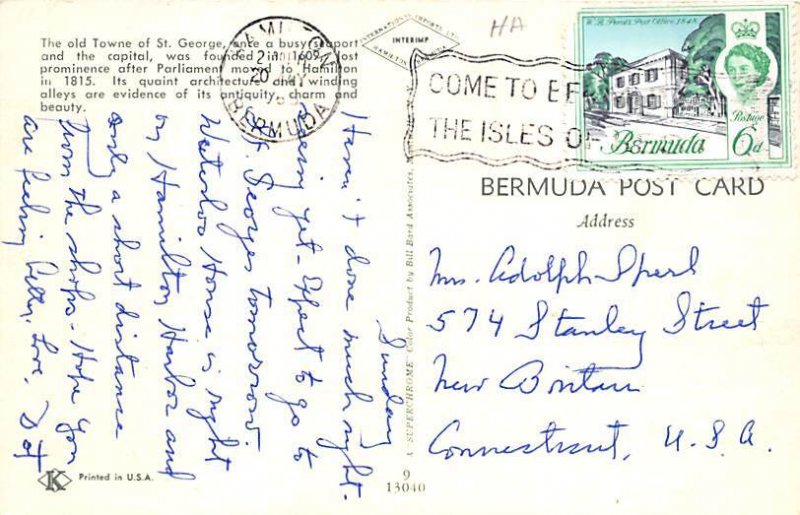 The old Towne of St. George, once a busy seaport
and the capital, was founded in 1609, lost
prominence after Parliament moved to Hamilton
in 1815. Its quaint architecture and winding
alleys are evidence of its antiquity, charm and
beauty.
INTERNATIONAL IMPORTS LTD.
INTERIMP
HAMILTON BERMUDA
HA
HAMILTON
20
BERMUDA
COME TO BE
THE ISLES OF
W. B. Perot's Post Office, 1848
Postage
Bermuda
6d
BERMUDA POST CARD
Address
Mrs. Adolph Sperl
574 Stanley Street
New Britain
Connecticut, U.S.A.
Sunday
Haven't done much sight-
seeing yet - Expect to go to
St. Georges tomorrow.
Waterloo House is right
on Hamilton Harbor and
only a short distance
from the shops - Hope you
are feeling better. Love, Dot
A SUPERCHROME Color Product by Bill Bard Associates,
K
Printed in U.S.A.
9
13040